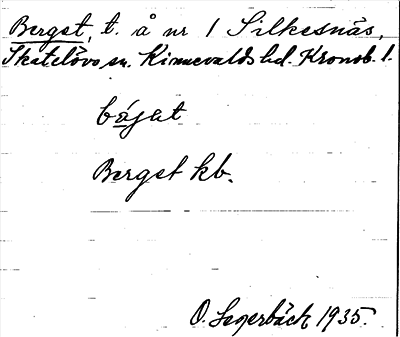 Berget, t. å nr 1 Silkesnäs,
Skatelövs sn. Kinnevalds hd. Kronob. l.
bájat
Berget kb.
O. Lagerbäck 1935.